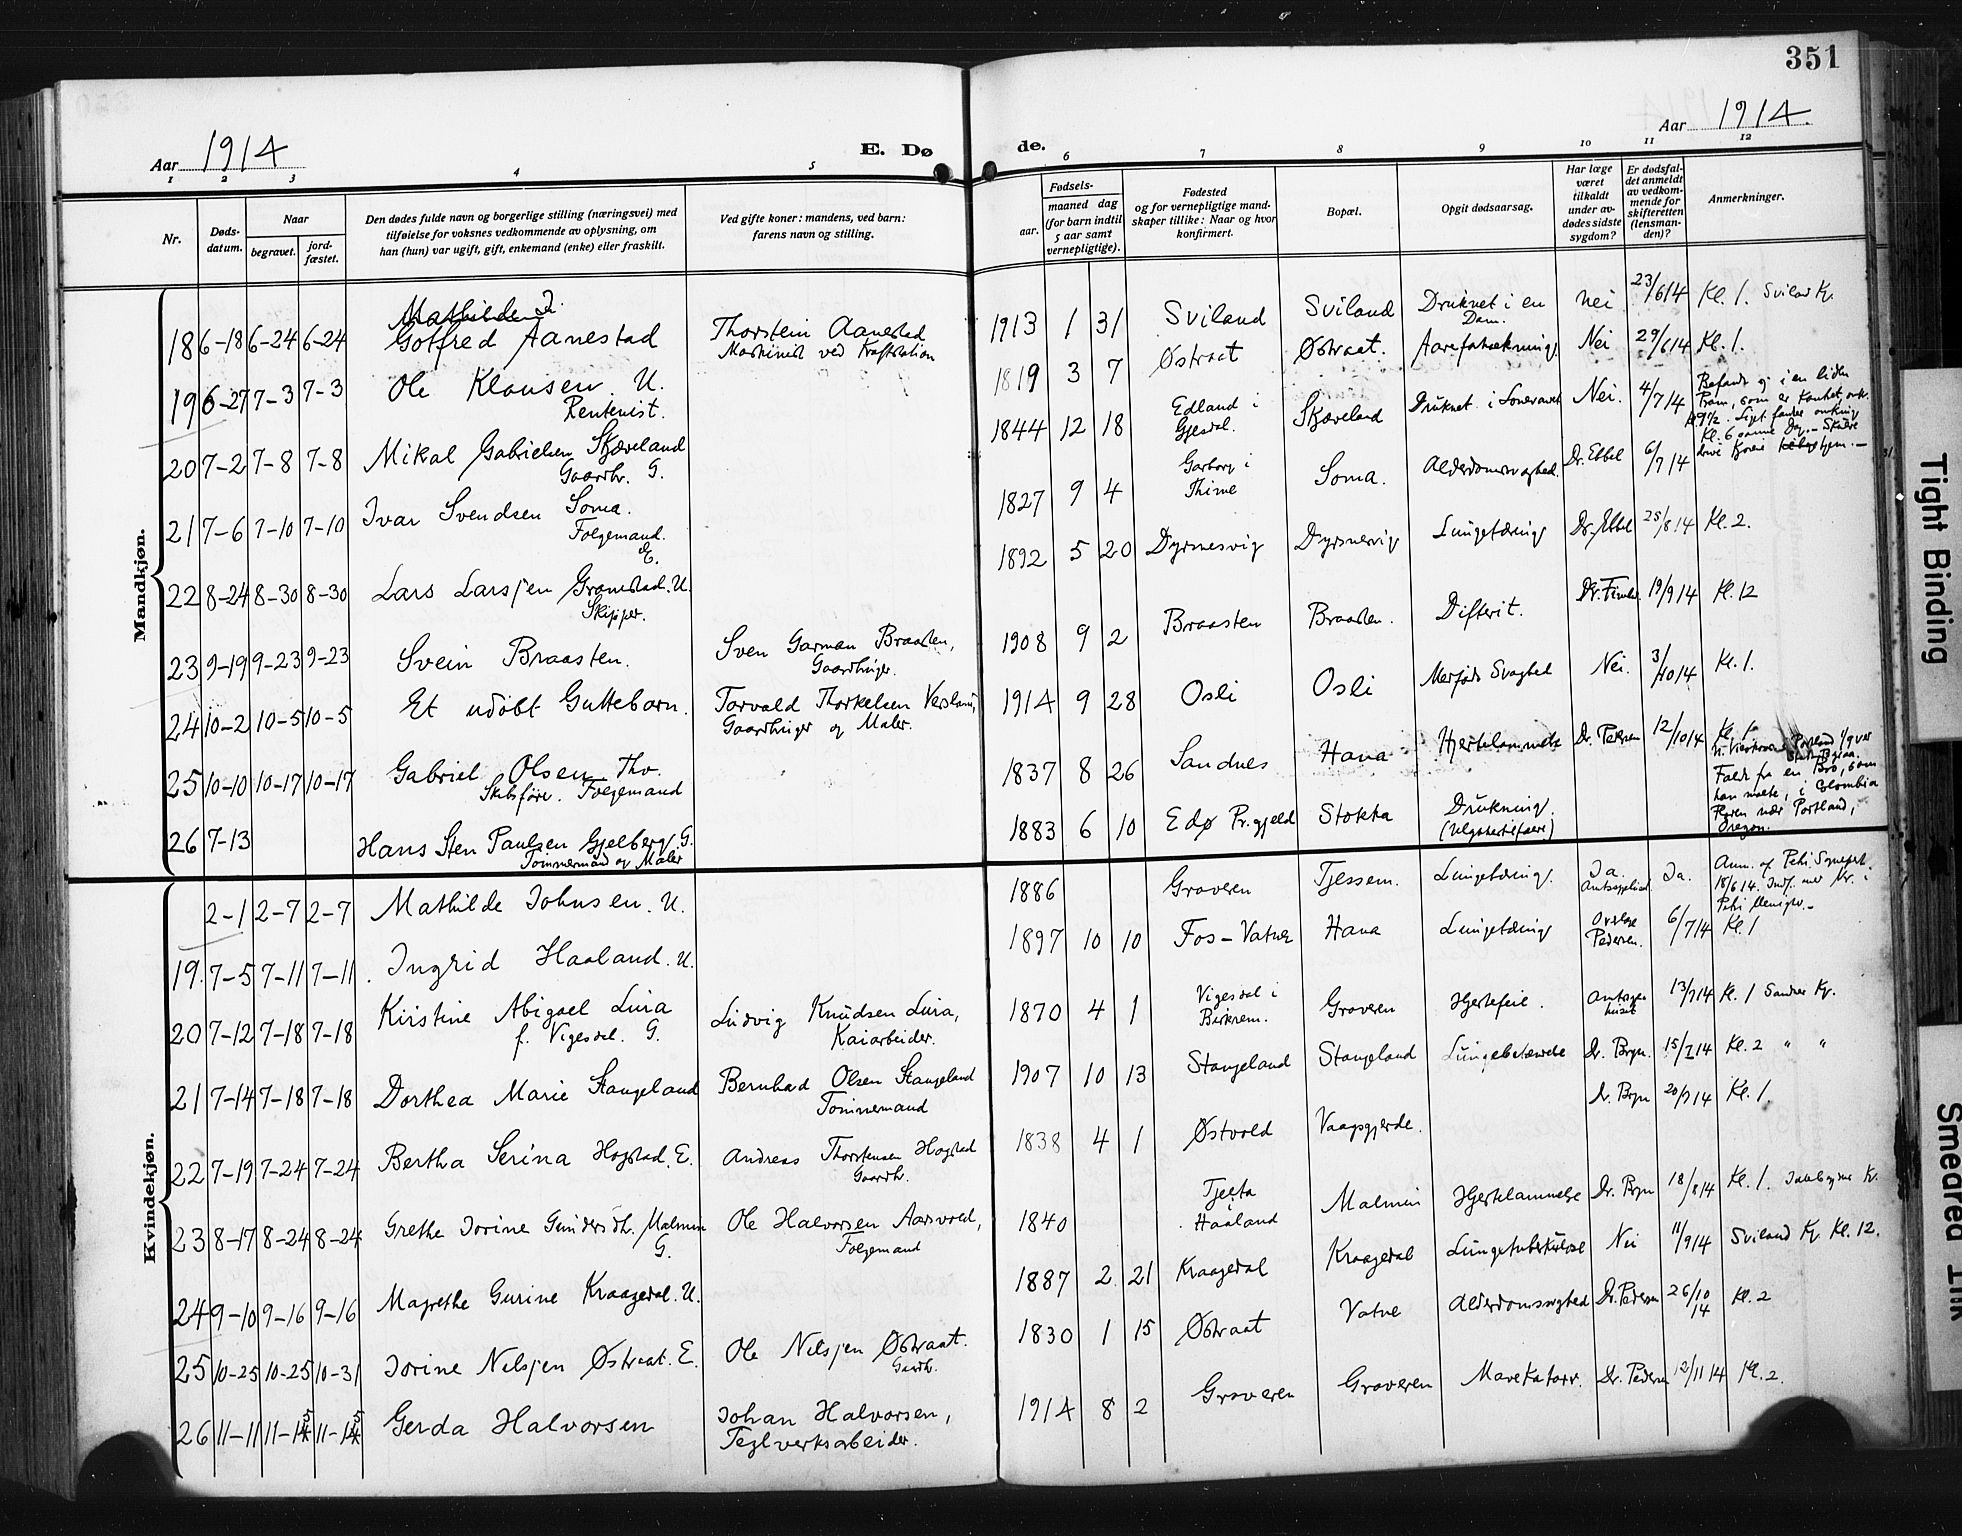 351
Aar 1914
E. Dø
de.
Aar 1914.
1 2 3 4 5 6 7 8 9 10 11 12
Nr.
Døds-
datum.
Naar
begravet.
jord-
fæstet.
Den dødes fulde navn og borgerlige stilling (næringsvei) med
tilføielse for voksnes vedkommende av oplysning, om
han (hun) var ugift, gift, enkemand (enke) eller fraskilt.
Ved gifte koner: mandens, ved barn:
farens navn og stilling.
Fødsels-
aar.
maaned dag
(for barn indtil
5 aar samt
vernepligtige).
Fødested
og for vernepligtige mand-
skaper tillike: Naar og hvor
konfirmert.
Bopæl.
Opgit dødsaarsag.
Har læge
været
tilkaldt
under av-
dødes sidste
sygdom?
Er dødsfal-
det anmeldt
av vedkom-
mende for
skifteretten
(lensman-
den)?
Anmerkninger.
Mandkjøn.
18 6-18 6-24 6-24 Gotfred Aanestad Thorstein Aanestad 1913 1 31 Sviland Sviland Druknet i en Nei 23/6 14 Kl. 1. Sviland Kp.
Maskinist ved Kraftstation Dam.
19 6-27 7-3 7-3 Ole Klausen U. 1819 3 7 Østraat Østraat. Nei 29/6 14 Kl. 1.
Rentenist.
20 7-2 7-8 7-8 Mikal Gabrielsen Skjæveland 1844 12 18 Edland i Skjæveland Druknet i Nei. 4/7 14
Gaardbr. G. Gjesdal.
21 7-6 7-10 7-10 Ivar Svendsen Soma. 1827 9 4 Garborg i Soma. Alderdomssvaghed. Dr. Ebbel 6/7 14
Folgemand. E. Thime
22 8-24 8-30 8-30 Lars Larsjen Gramstad. U. 1892 5 20 Dyrsnesvig Dyrsnesvig Lungetæring Dr. Ebbel 25/8 14 Kl. 2.
Skipper.
23 9-19 9-23 9-23 Svein Braasten. Sven Garman Braasten, 1908 9 2 Braasten Braasten. Difterit. 19/9 14 Kl. 12
Gaardbruger.
24 10-2 10-5 10-5 Et udöbt Guttebarn. Torvald Thorkelsen 1914 9 28 Osli Osli Medfødt Svaghed Nei. 3/10 14 Kl. 1.
Gaardbruger og Maler.
25 10-10 10-17 10-17 Gabriel Olsen Tho. 1837 8 26 Sandnes Hana Hjertelammelse Dr. Pedersen 12/10 14 Kl. 1
Skibsfører. Folgemand
26 7-13 Hans Sten Paulsen Gjelberg. G. 1883 6 10 Edø Pr.gjeld Stokka Drukning.
Tømmermand og Maler (Ulykkestilfælde)
Faldt fra en Bro, som
han malte, i Colombia
Floden nær Portland,
Oregon.
Kvindekjøn.
2-1 2-7 2-7 Mathilde Johnsen. U. 1886 Graveren Tjessem. Lungetæring. Ja. Ja.
19. 7-5 7-11 7-11. Ingrid Haaland. U. 1897 10 10 Fos-Vatne Hana Lungetæring Pedersen. 6/7 14 Kl. 1
20 7-12 7-18 7-18 Kirstine Abigael Lura Ludvig Knudsen Lura, 1870 4 1 Vigesdal i Graveren Hjertefeil. 13/7 14 Kl. 1 Sandnes Kp.
f. Vigesdal. G. Kaiarbeider. Birkrem.
21 7-14 7-18 7-18 Dorthea Marie Stangeland Bernhard Olsen Stangeland 1907 10 13 Stangeland Stangeland Lungebetændelse Dr. Bryn. 15/7 14 Kl. 2 " "
Tømmermand
22 7-19 7-24 7-24 Bertha Serina Hogstad. E. Andreas Thorstensen Hogstad 1838 4 1 Østvold Vaagsgjerde. Dr. Bryn 20/7 14 Kl. 1.
Gaardbr.
23 8-17 8-24 8-24 Grethe Jorine Gundersdt. Malmin Ole Halvorsen Aarsvold, 1840 Tjelta Malmin Hjertelammelse Dr. Bryn 18/8 14 Kl. 1.
G. Folgemand Haaland
24 9-10 9-16 9-16 Magrethe Gurine Kraagedal. U. 1887 2 21 Kraagedal Kraagedal Lungetuberkulose Nei 11/9 14 Sviland Kp. Kl. 12.
25 10-25 10-25 10-31 Jorine Nilsjen Østraat. E. Ole Nilsjen Østraat. 1830 1 15 Østraat Vatne Alderdomssvaghed Dr. Pedersen 26/10 14 Kl. 2
Gaardbr.
26 11-11 11-15 11-15 Gerda Halvorsen Johan Halvorsen, 1914 8 2 Graveren Graveren Mavekatarr. Dr. Pedersen 12/11 14 Kl. 2.
Teglverksarbeider.
Tight Binding
Smeared Ink